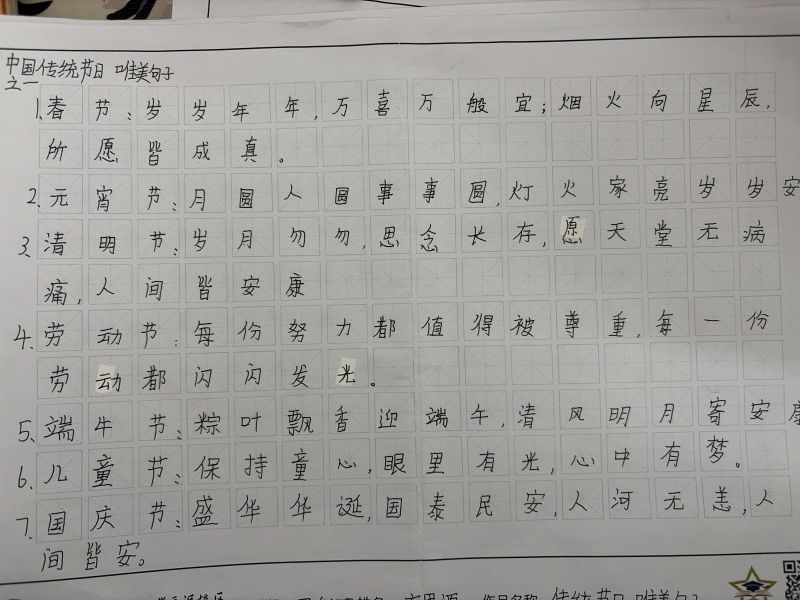 中国传统节日 唯美句子
之一
1.春节:岁岁年年,万喜万般宜;烟火向星辰,
所愿皆成真。
2.元宵节:月圆人圆事事圆,灯火家亮岁岁安
3.清明节:岁月勿勿,思念长存,愿天堂无病
痛,人间皆安康
4.劳动节:每份努力都值得被尊重,每一份
劳动都闪闪发光。
5.端牛节:粽叶飘香迎端午,清风明月寄安康
6.儿童节:保持童心,眼里有光,心中有梦。
7.国庆节:盛华华诞,国泰民安,人河无恙,人
间皆安。
传统节日 唯美句子